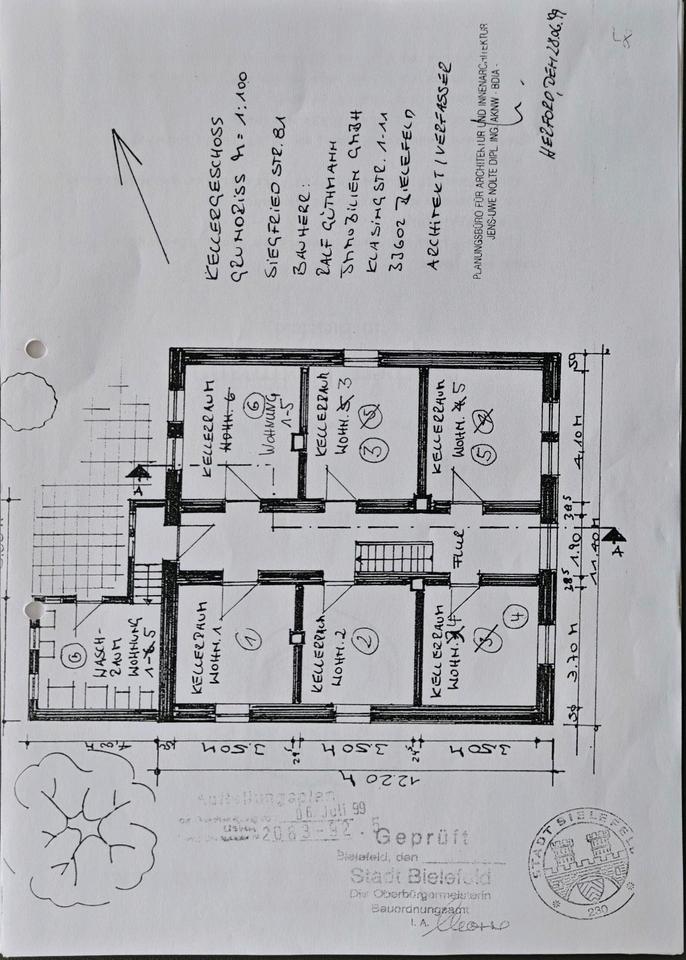 KELLERGESCHOSS
GRUNDRISS M = 1:100
SIEGFRIED STR. 81
BAUHERR:
RALF GÜTHMANN
IMMOBILIEN GMBH
KLASINGSTR. 1-11
33602 BIELEFELD
ARCHITEKT/VERFASSER
PLANUNGSBÜRO FÜR ARCHITEKTUR UND INNENARCHITEKTUR
JENS-UWE NOLTE DIPL. ING. AKNW - BDIA -
HERFORD, DEN 28.06.99
KELLERRAUM
WOHN. 6
6
WOHNUNG
1-5
KELLERRAUM
WOHN. 3
3
KELLERRAUM
WOHN. 5
5
A
FLUR
A
WASCH-
RAUM
WOHNUNG
1-5
KELLERRAUM
WOHN. 1
1
KELLERRAUM
WOHN. 2
2
KELLERRAUM
WOHN. 4
3
4
50
4,10 M
38⁵
1.90
38⁵
3.70 M
30
11.40 M
3.50 M
24⁵
3.50 M
24⁵
3.50 M
12.20 M
Aufteilungsplan
06. Juli 99
2083-92.5
Geprüft
Bielefeld, den
Stadt Bielefeld
Die Oberbürgermeisterin
Bauordnungsamt
I. A.
STADT BIELEFELD
230